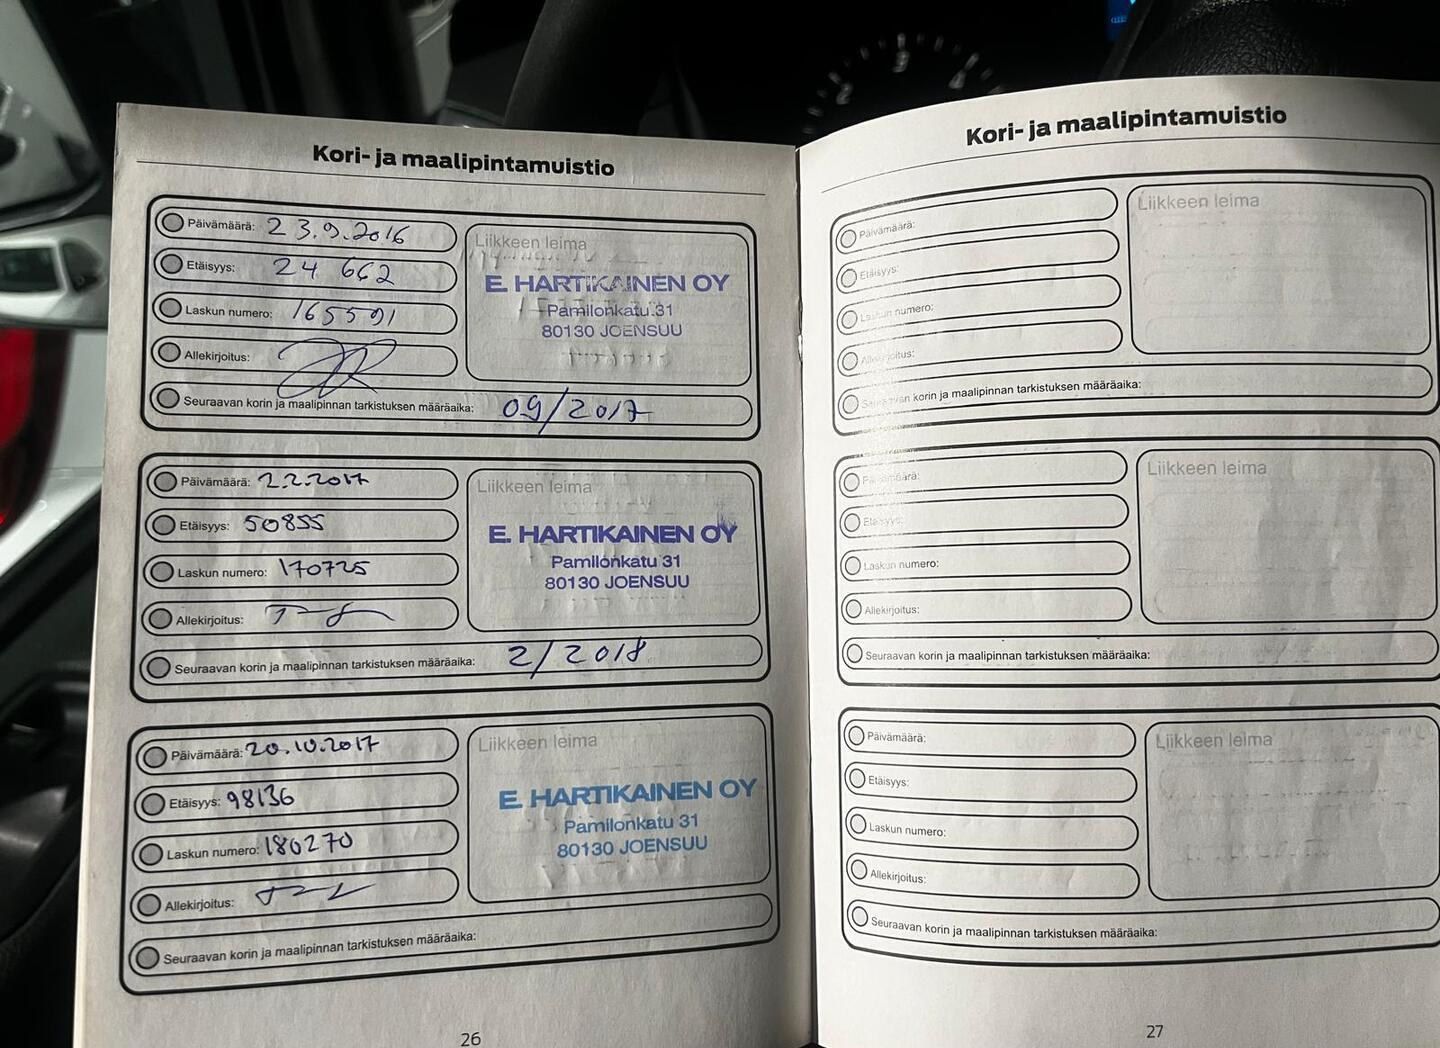 Kori- ja maalipintamuistio
Päivämäärä: 23.9.2016
Etäisyys: 24 662
Laskun numero: 165591
Allekirjoitus:
Liikkeen leima
E. HARTIKAINEN OY
Pamilonkatu 31
80130 JOENSUU
Seuraavan korin ja maalipinnan tarkistuksen määräaika: 09/2017
Päivämäärä: 2.2.2017
Etäisyys: 50855
Laskun numero: 170725
Allekirjoitus:
Liikkeen leima
E. HARTIKAINEN OY
Pamilonkatu 31
80130 JOENSUU
Seuraavan korin ja maalipinnan tarkistuksen määräaika: 2/2018
Päivämäärä: 20.10.2017
Etäisyys: 98136
Laskun numero: 180270
Allekirjoitus:
Liikkeen leima
E. HARTIKAINEN OY
Pamilonkatu 31
80130 JOENSUU
Seuraavan korin ja maalipinnan tarkistuksen määräaika:
26
Kori- ja maalipintamuistio
Päivämäärä:
Etäisyys:
Laskun numero:
Allekirjoitus:
Liikkeen leima
Seuraavan korin ja maalipinnan tarkistuksen määräaika:
Päivämäärä:
Etäisyys:
Laskun numero:
Allekirjoitus:
Liikkeen leima
Seuraavan korin ja maalipinnan tarkistuksen määräaika:
Päivämäärä:
Etäisyys:
Laskun numero:
Allekirjoitus:
Liikkeen leima
Seuraavan korin ja maalipinnan tarkistuksen määräaika:
27
2
3
4